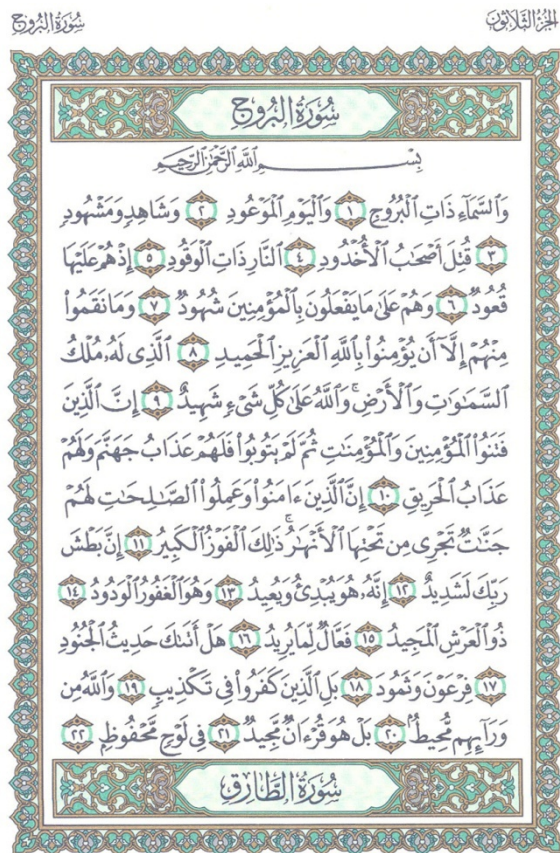 الجزء الثلاثون
سُورَةُ البُرُوج
سُورَةُ البُرُوجِ
بِسْمِ ٱللَّهِ ٱلرَّحْمَٰنِ ٱلرَّحِيمِ
وَٱلسَّمَآءِ ذَاتِ ٱلْبُرُوجِ ١ وَٱلْيَوْمِ ٱلْمَوْعُودِ ٢ وَشَاهِدٍ وَمَشْهُودٍ
٣ قُتِلَ أَصْحَٰبُ ٱلْأُخْدُودِ ٤ ٱلنَّارِ ذَاتِ ٱلْوَقُودِ ٥ إِذْ هُمْ عَلَيْهَا
قُعُودٌ ٦ وَهُمْ عَلَىٰ مَا يَفْعَلُونَ بِٱلْمُؤْمِنِينَ شُهُودٌ ٧ وَمَا نَقَمُوا۟
مِنْهُمْ إِلَّآ أَن يُؤْمِنُوا۟ بِٱللَّهِ ٱلْعَزِيزِ ٱلْحَمِيدِ ٨ ٱلَّذِى لَهُۥ مُلْكُ
ٱلسَّمَٰوَٰتِ وَٱلْأَرْضِ ۚ وَٱللَّهُ عَلَىٰ كُلِّ شَىْءٍ شَهِيدٌ ٩ إِنَّ ٱلَّذِينَ
فَتَنُوا۟ ٱلْمُؤْمِنِينَ وَٱلْمُؤْمِنَٰتِ ثُمَّ لَمْ يَتُوبُوا۟ فَلَهُمْ عَذَابُ جَهَنَّمَ وَلَهُمْ
عَذَابُ ٱلْحَرِيقِ ١٠ إِنَّ ٱلَّذِينَ ءَامَنُوا۟ وَعَمِلُوا۟ ٱلصَّٰلِحَٰتِ لَهُمْ
جَنَّٰتٌ تَجْرِى مِن تَحْتِهَا ٱلْأَنْهَٰرُ ۚ ذَٰلِكَ ٱلْفَوْزُ ٱلْكَبِيرُ ١١ إِنَّ بَطْشَ
رَبِّكَ لَشَدِيدٌ ١٢ إِنَّهُۥ هُوَ يُبْدِئُ وَيُعِيدُ ١٣ وَهُوَ ٱلْغَفُورُ ٱلْوَدُودُ ١٤
ذُو ٱلْعَرْشِ ٱلْمَجِيدُ ١٥ فَعَّالٌ لِّمَا يُرِيدُ ١٦ هَلْ أَتَىٰكَ حَدِيثُ ٱلْجُنُودِ
١٧ فِرْعَوْنَ وَثَمُودَ ١٨ بَلِ ٱلَّذِينَ كَفَرُوا۟ فِى تَكْذِيبٍ ١٩ وَٱللَّهُ مِن
وَرَآئِهِم مُّحِيطٌۢ ٢٠ بَلْ هُوَ قُرْءَانٌ مَّجِيدٌ ٢١ فِى لَوْحٍ مَّحْفُوظٍۭ ٢٢
سُورَةُ الطَّارِقِ